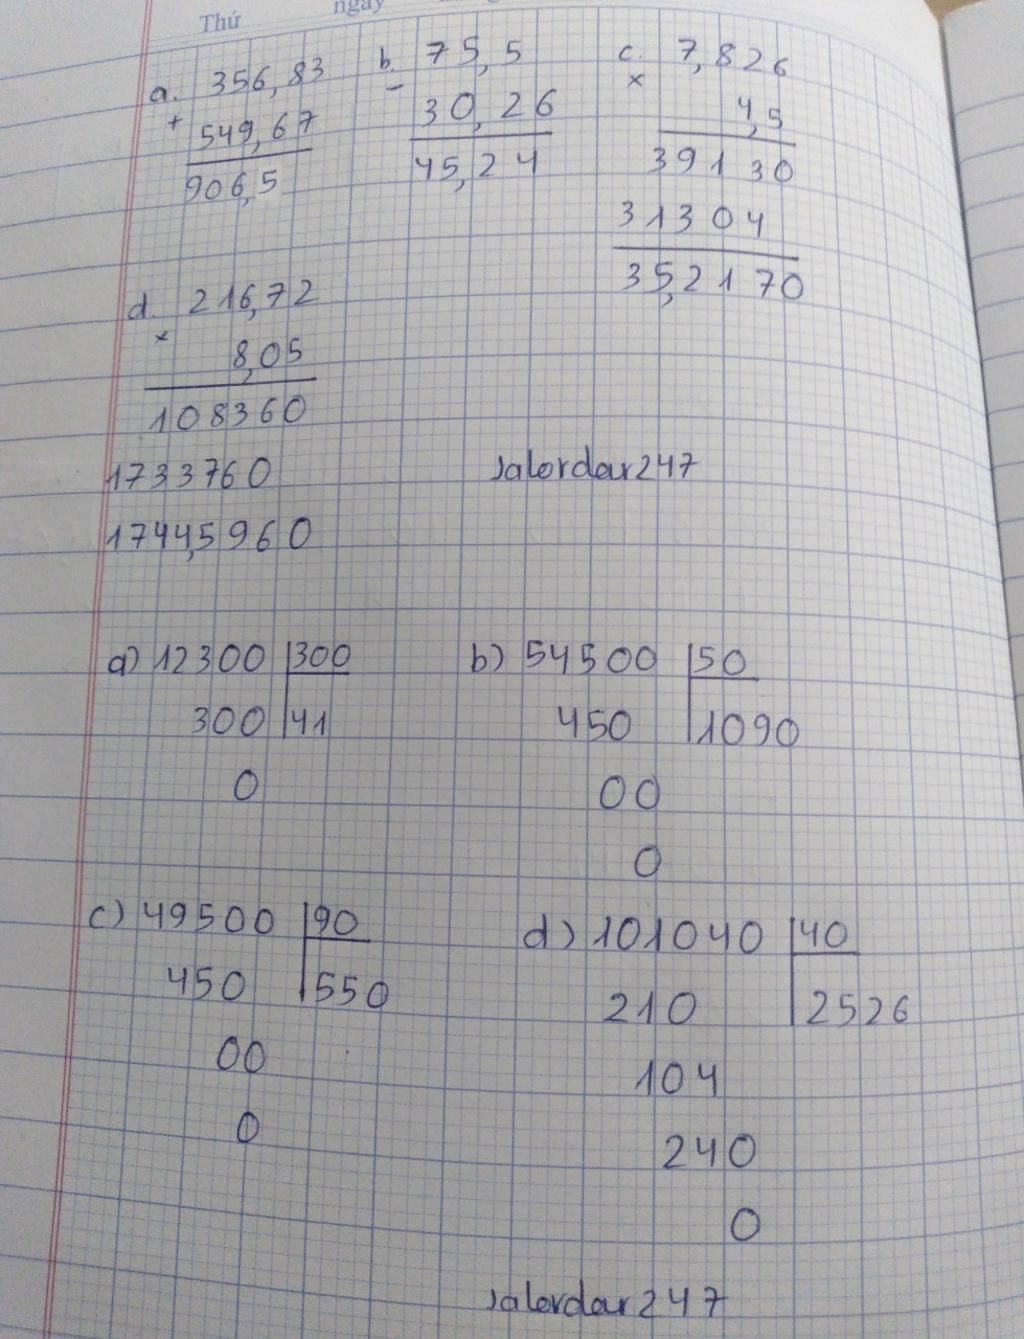 Thứ ngày
a. 356,83 b. 75,5 c. 7,826
+ 549,67 - 30,26 × 4,5
906,5 45,24 39130
31304
35,2170
d. 216,72
× 8,05
108360
1733760
1744,5960
Jalordar247
a) 12300 300 b) 54500 50
300 41 450 1090
0 00
0
c) 49500 90 d) 101040 40
450 550 210 2526
00 104
0 240
0
Jalordar247